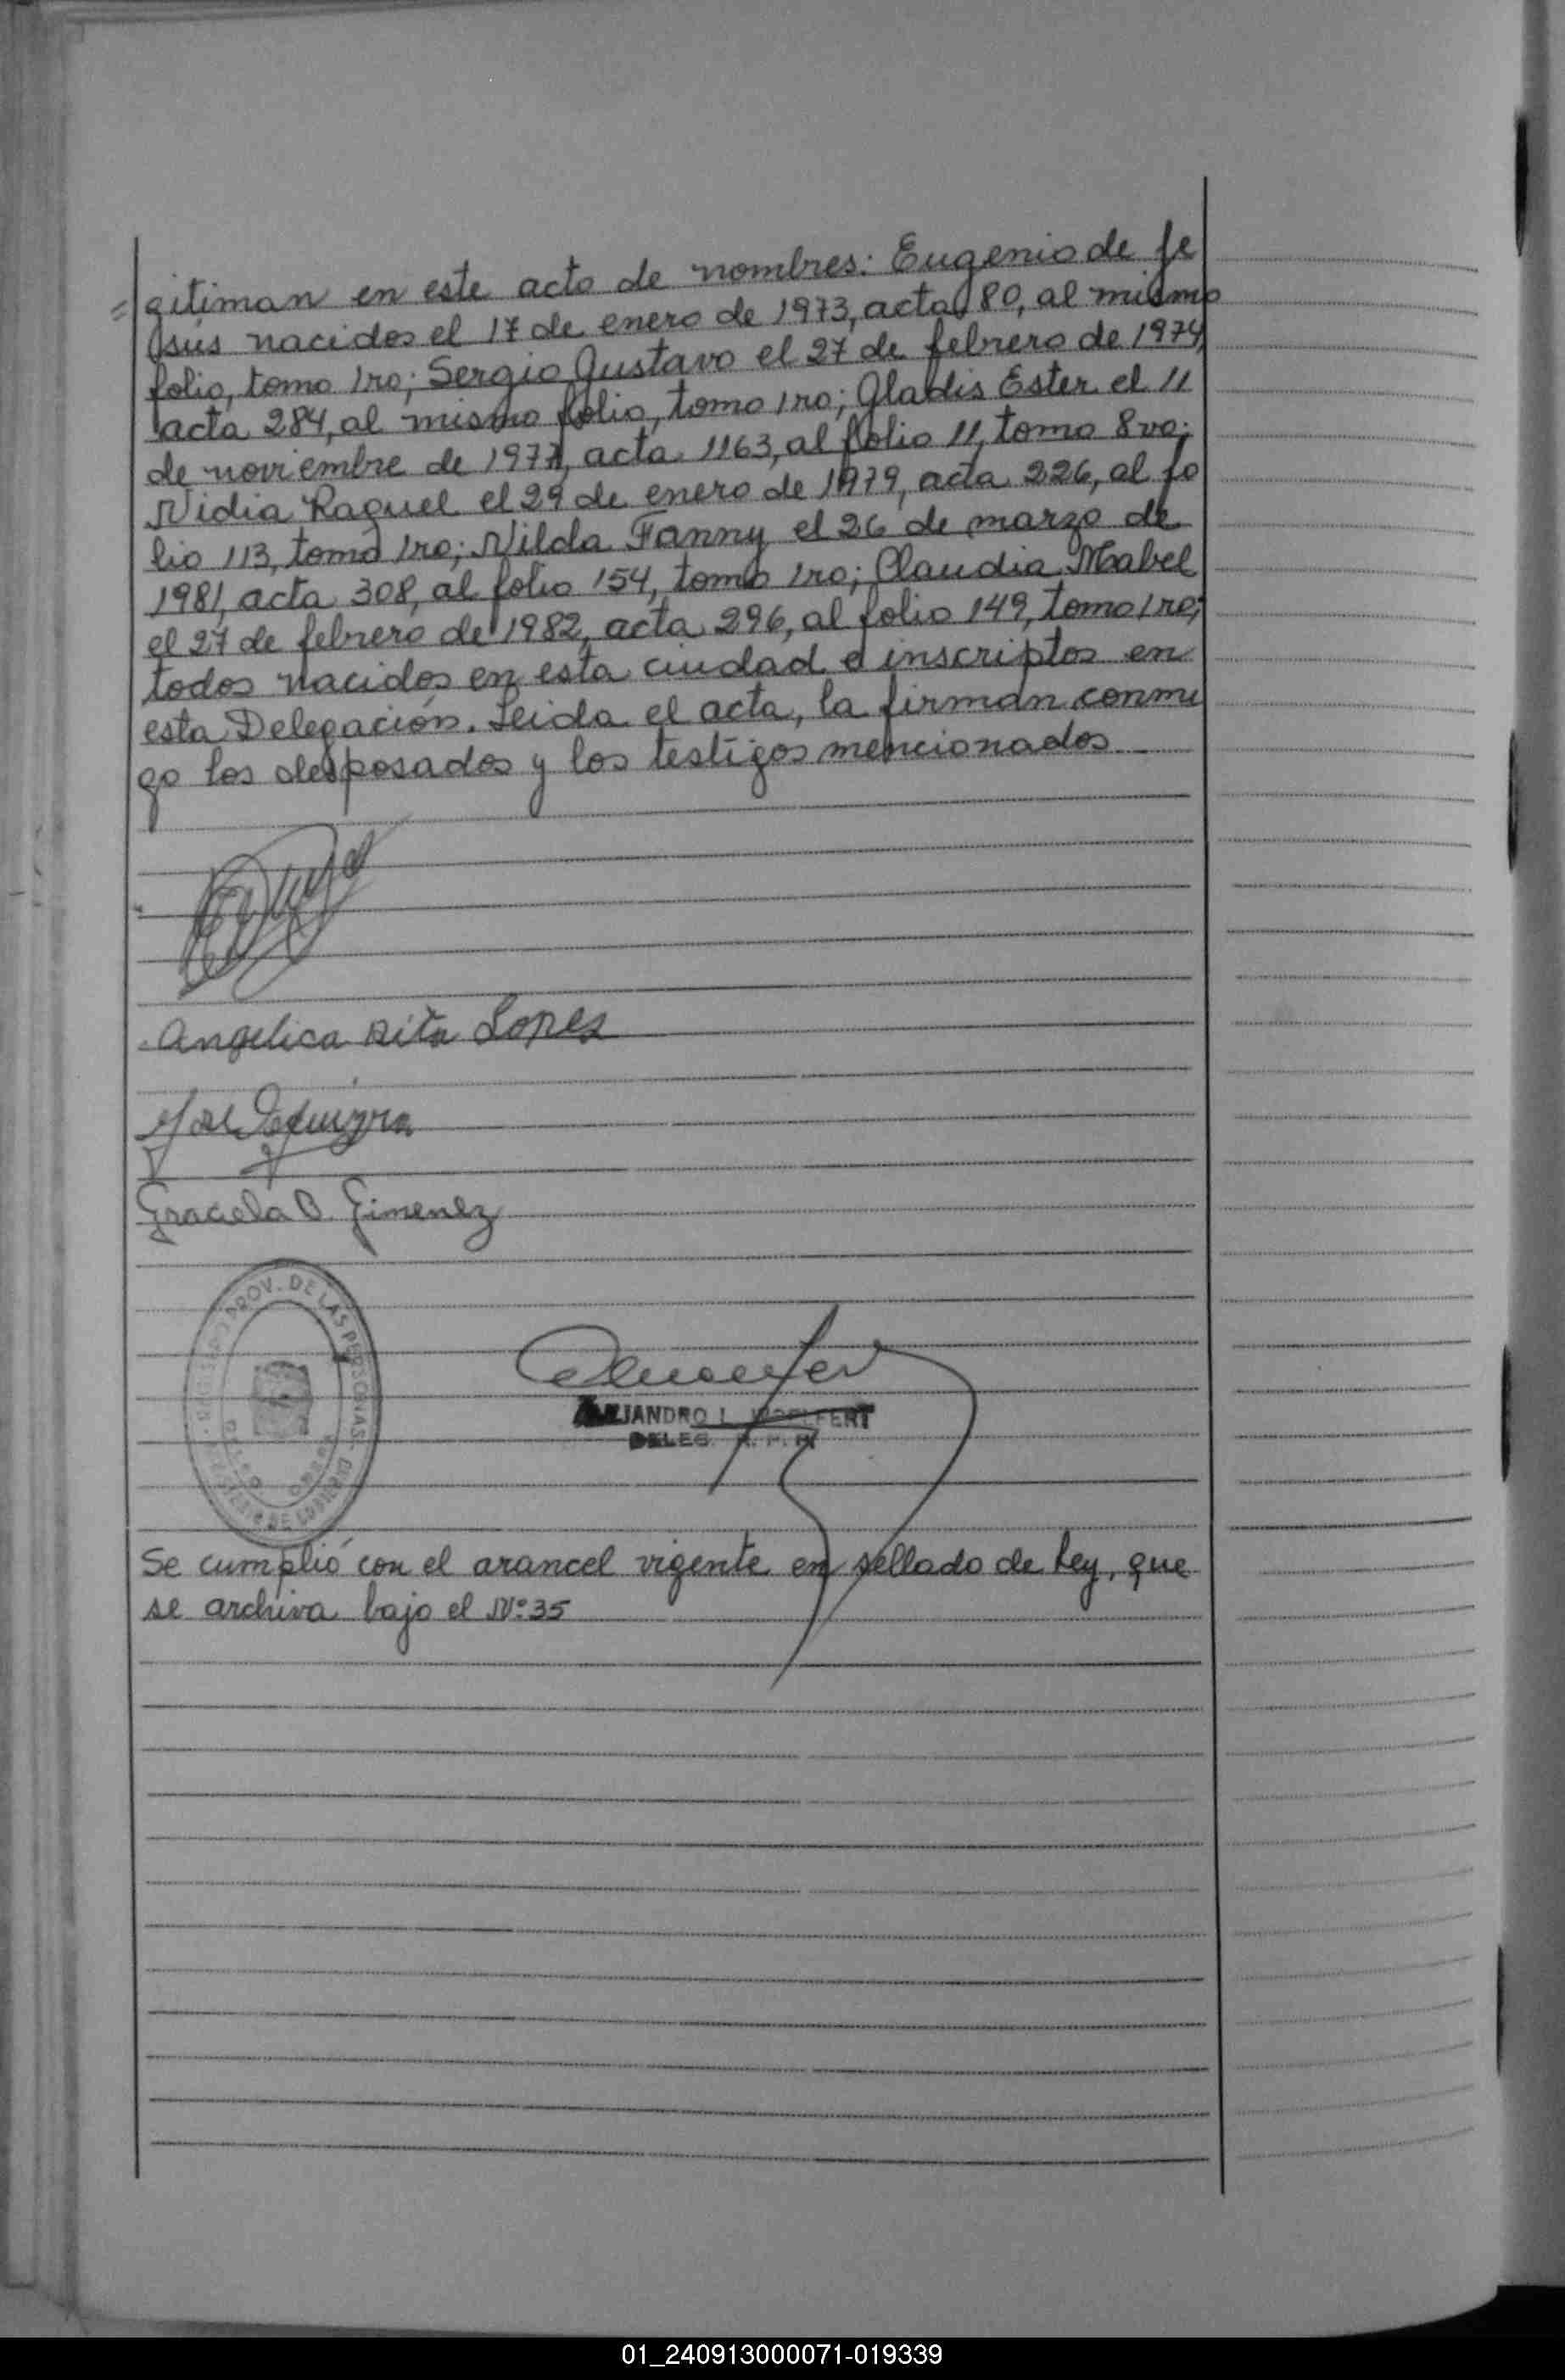 =gitiman en este acto de nombres: Eugenio de Je
sús nacidos el 17 de enero de 1973, acta 80, al mismo
folio, tomo 1ro; Sergio Gustavo el 27 de febrero de 1974,
acta 284, al mismo folio, tomo 1ro; Gladis Ester el 11
de noviembre de 1977, acta 1163, al folio 11, tomo 8vo;
Nidia Raquel el 29 de enero de 1979, acta 226, al fo
lio 113, tomo 1ro; Nilda Fanny el 26 de marzo de
1981, acta 308, al folio 154, tomo 1ro; Claudia Mabel
el 27 de febrero de 1982, acta 296, al folio 149, tomo 1ro;
todos nacidos en esta ciudad e inscriptos en
esta Delegación. Leida el acta, la firman conmi
go los desposados y los testigos mencionados
Angelica Rita Lopes
Graciela B. Gimenez
PROV. DE LAS PERSONAS
ALEJANDRO L.
DELEG. R. P. P.
Se cumplió con el arancel vigente en sellado de Ley, que
se archiva bajo el Nº 35
01_240913000071-019339